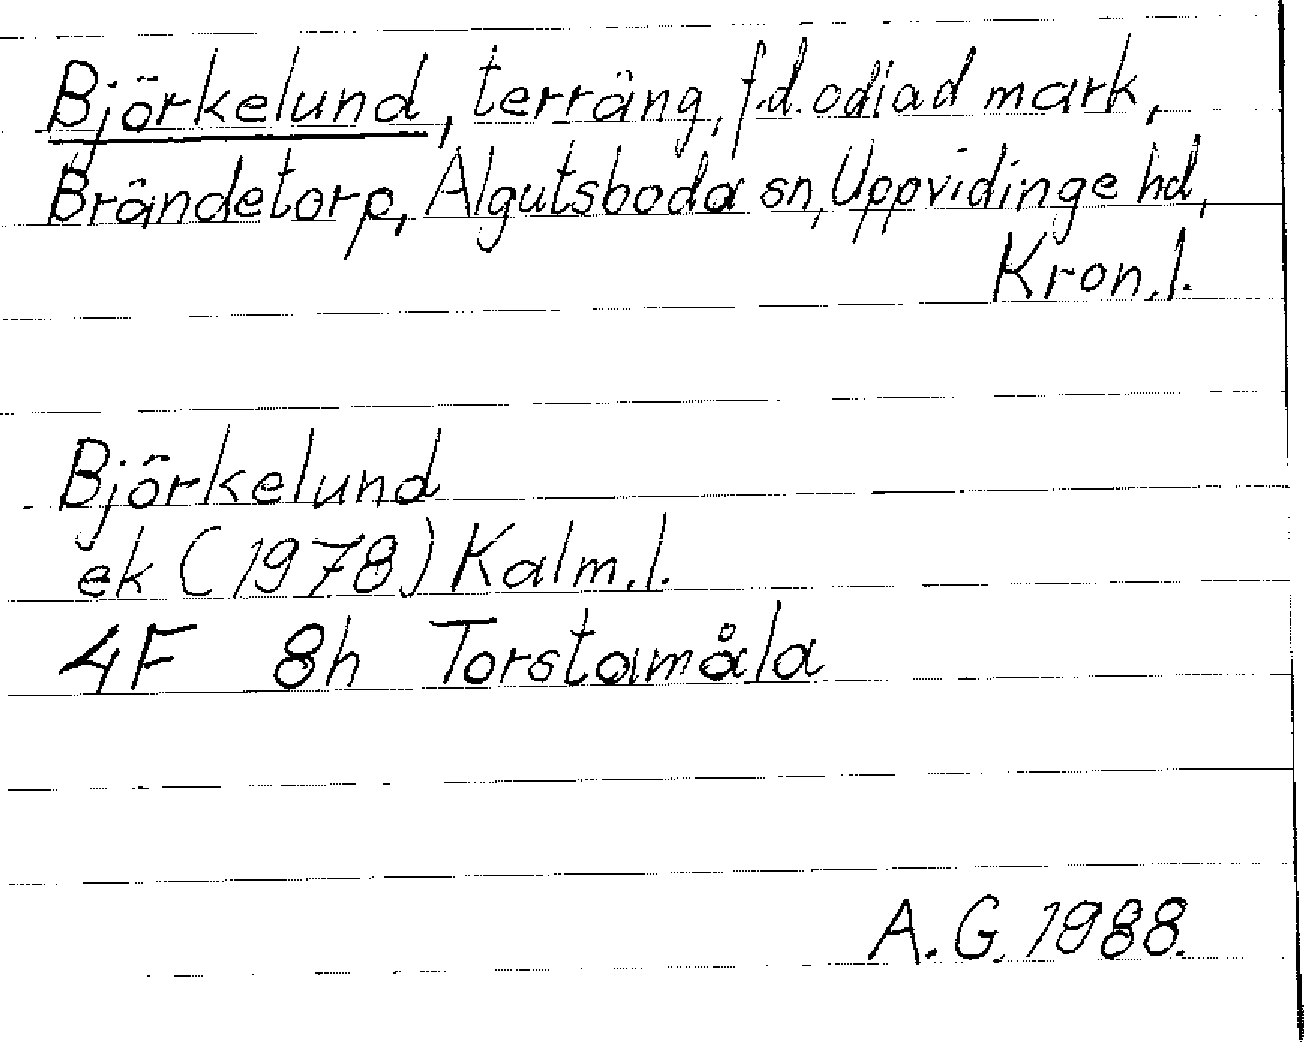 Björkelund, terräng, f.d. odlad mark,
Brändetorp, Algutsboda sn, Uppvidinge hd,
Kron.l.
Björkelund
ek (1978) Kalm.l.
4F 8h Torstamåla
A.G. 1988.